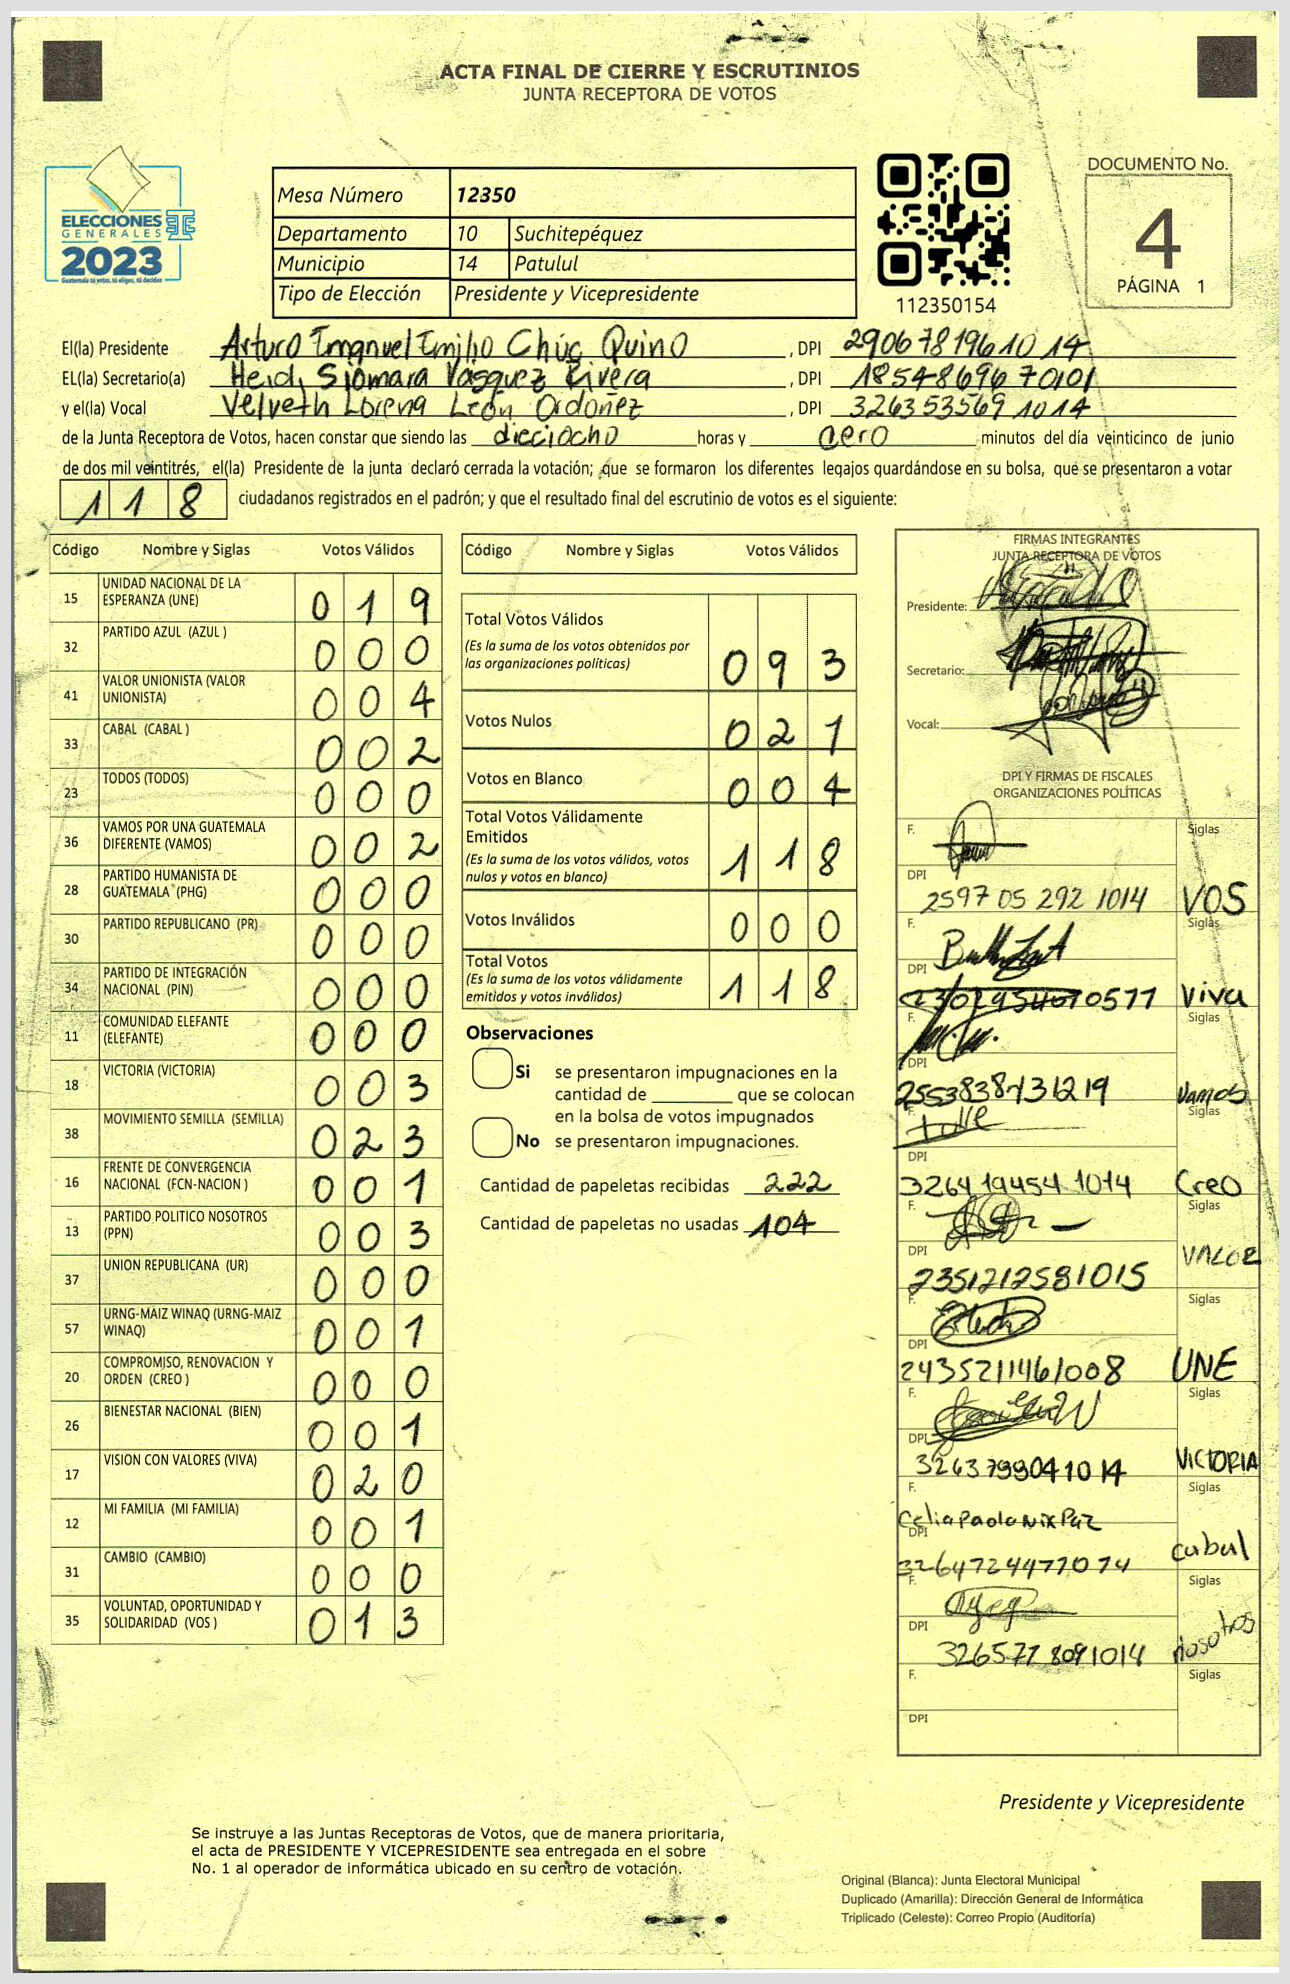 ACTA FINAL DE CIERRE Y ESCRUTINIOS
JUNTA RECEPTORA DE VOTOS
ELECCIONES
GENERALES
2023
Guatemala tú votas, tú eliges, tú decides
Mesa Número 12350
Departamento 10 Suchitepéquez
Municipio 14 Patulul
Tipo de Elección Presidente y Vicepresidente
112350154
DOCUMENTO No.
4
PÁGINA 1
El(la) Presidente Arturo Emanuel Emilio Chúc Quino , DPI 2906781961014
EL(la) Secretario(a) Heidi Siomara Vásquez Rivera , DPI 1854869670101
y el(la) Vocal Velveth Lorena León Ordoñez , DPI 3263535691014
de la Junta Receptora de Votos, hacen constar que siendo las dieciocho horas y cero minutos del día veinticinco de junio
de dos mil veintitrés, el(la) Presidente de la junta declaró cerrada la votación; que se formaron los diferentes legajos quardándose en su bolsa, que se presentaron a votar
118 ciudadanos registrados en el padrón; y que el resultado final del escrutinio de votos es el siguiente:
Código Nombre y Siglas Votos Válidos
15 UNIDAD NACIONAL DE LA ESPERANZA (UNE) 019
32 PARTIDO AZUL (AZUL ) 000
41 VALOR UNIONISTA (VALOR UNIONISTA) 004
33 CABAL (CABAL ) 002
23 TODOS (TODOS) 000
36 VAMOS POR UNA GUATEMALA DIFERENTE (VAMOS) 002
28 PARTIDO HUMANISTA DE GUATEMALA (PHG) 000
30 PARTIDO REPUBLICANO (PR) 000
34 PARTIDO DE INTEGRACIÓN NACIONAL (PIN) 000
11 COMUNIDAD ELEFANTE (ELEFANTE) 000
18 VICTORIA (VICTORIA) 003
38 MOVIMIENTO SEMILLA (SEMILLA) 023
16 FRENTE DE CONVERGENCIA NACIONAL (FCN-NACION ) 001
13 PARTIDO POLITICO NOSOTROS (PPN) 003
37 UNION REPUBLICANA (UR) 000
57 URNG-MAIZ WINAQ (URNG-MAIZ WINAQ) 001
20 COMPROMISO, RENOVACION Y ORDEN (CREO ) 000
26 BIENESTAR NACIONAL (BIEN) 001
17 VISION CON VALORES (VIVA) 020
12 MI FAMILIA (MI FAMILIA) 001
31 CAMBIO (CAMBIO) 000
35 VOLUNTAD, OPORTUNIDAD Y SOLIDARIDAD (VOS ) 013
Código Nombre y Siglas Votos Válidos
Total Votos Válidos
(Es la suma de los votos obtenidos por
las organizaciones políticas) 093
Votos Nulos 021
Votos en Blanco 004
Total Votos Válidamente
Emitidos
(Es la suma de los votos válidos, votos
nulos y votos en blanco) 118
Votos Inválidos 000
Total Votos
(Es la suma de los votos válidamente
emitidos y votos inválidos) 118
Observaciones
Si se presentaron impugnaciones en la
cantidad de ________ que se colocan
en la bolsa de votos impugnados
No se presentaron impugnaciones.
Cantidad de papeletas recibidas 222
Cantidad de papeletas no usadas 104
FIRMAS INTEGRANTES
JUNTA RECEPTORA DE VOTOS
Presidente:
Secretario:
Vocal:
DPI Y FIRMAS DE FISCALES
ORGANIZACIONES POLÍTICAS
F. Siglas
DPI 2597 05 292 1014 VOS
F. Siglas
DPI Viva
F. Siglas
DPI 2553838731219 Vamos
F. Siglas
DPI 3264194541014 Creo
F. Siglas
DPI 2351212581015 VALOR
F. Siglas
DPI 2435211461008 UNE
F. Siglas
DPI 3263799041014 VICTORIA
F. Celia Paola Nix Paz Siglas
DPI 3264724477074 cabal
F. Siglas
DPI 3265778091014 nosotros
F. Siglas
DPI
Presidente y Vicepresidente
Se instruye a las Juntas Receptoras de Votos, que de manera prioritaria,
el acta de PRESIDENTE Y VICEPRESIDENTE sea entregada en el sobre
No. 1 al operador de informática ubicado en su centro de votación.
Original (Blanca): Junta Electoral Municipal
Duplicado (Amarilla): Dirección General de Informática
Triplicado (Celeste): Correo Propio (Auditoría)